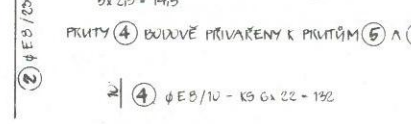 ② ϕE8/25
PRUTY ④ BODOVĚ PŘIVAŘENY K PRUTŮM ⑤ A
④ ϕE8/10 - KS 6x22 = 132